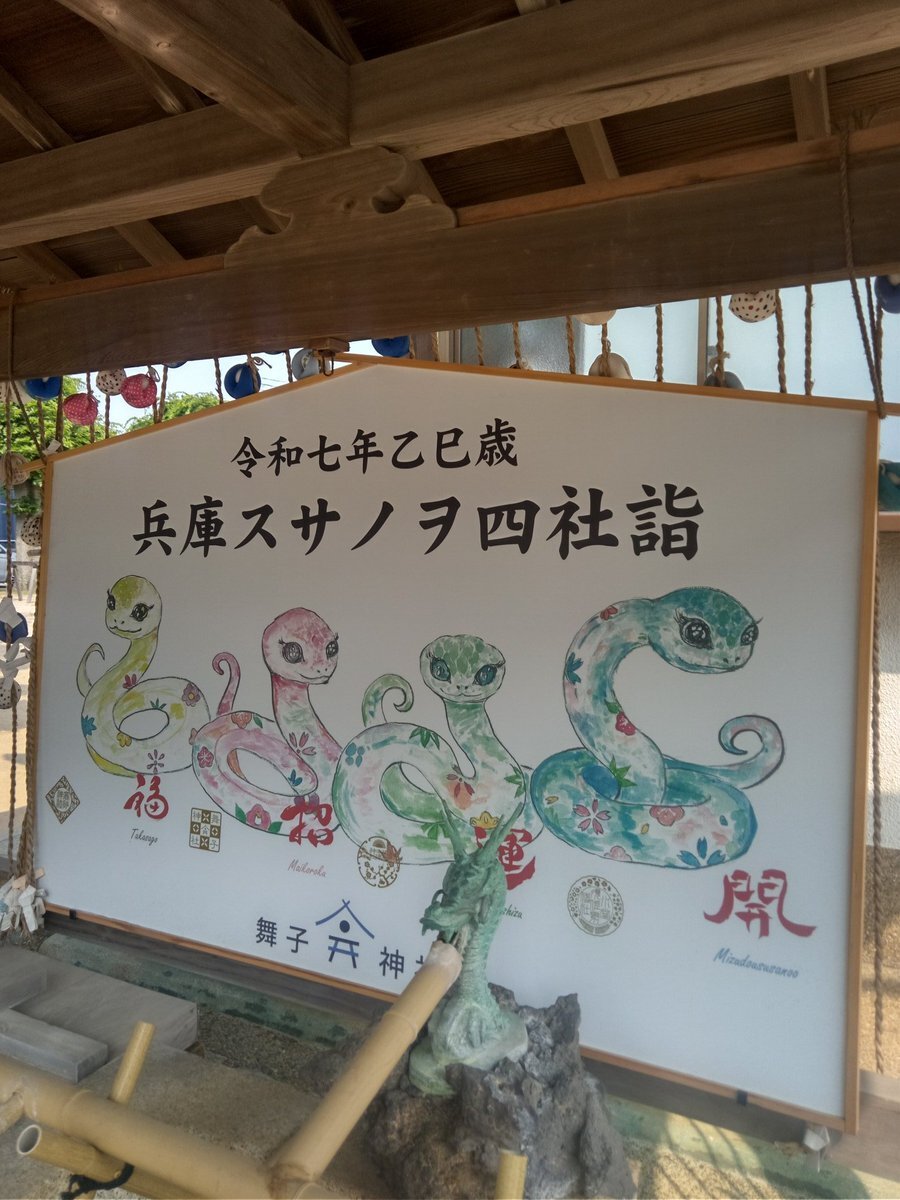 令和七年乙巳歳
兵庫スサノヲ四社詣
福
Takasago
招
Maikoroku
運
開
Mizudoususanoo
舞子
神